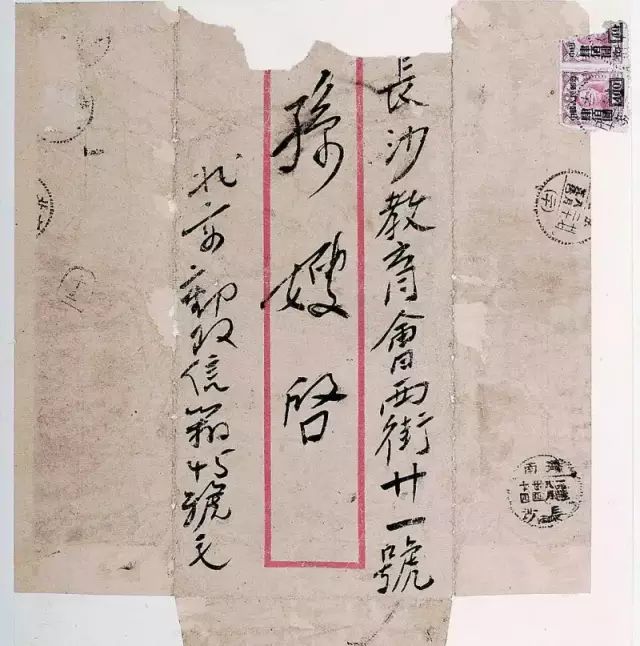 長沙教育會西街廿一號
孫嫂啓
北京郵政信箱45號毛
湖南
長沙